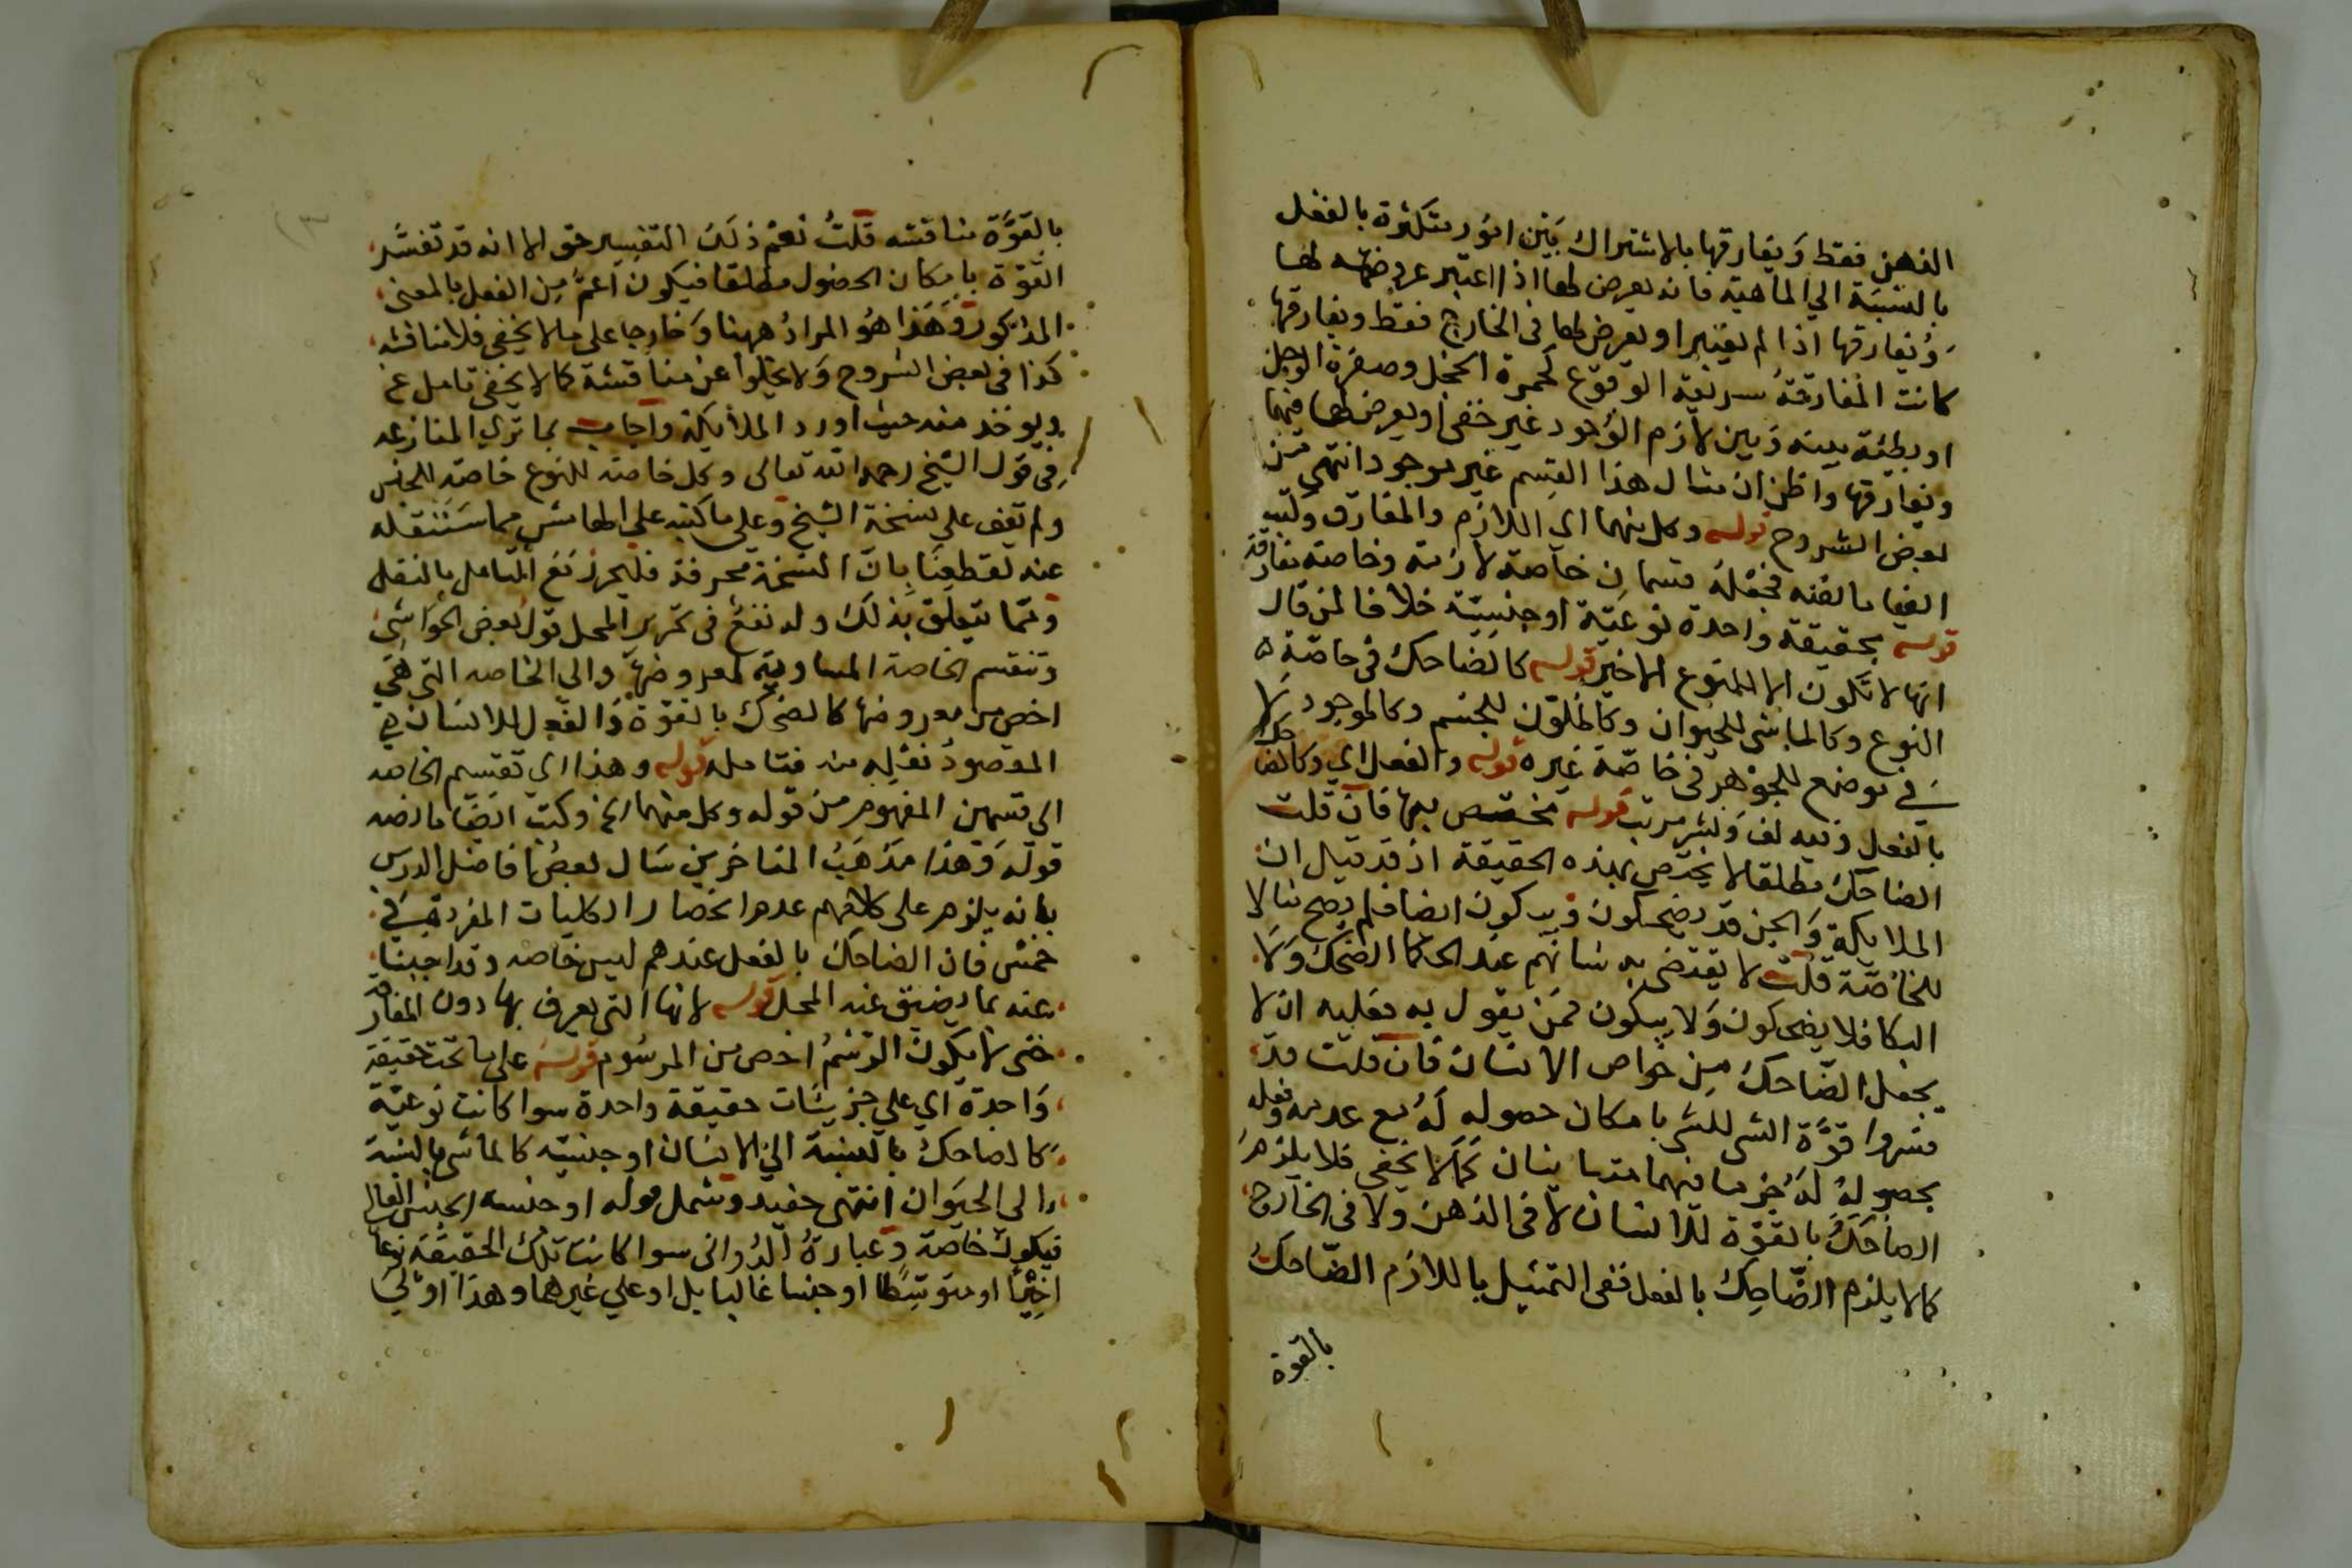 الذهن فقط ويفارقها بالاشتراك بين امور متكثرة بالفعل
بالنسبة الي الماهية فانه يعرض لها اذا اعتبر عروضه لها
ويفارقها اذا لم يعتبر او يعرض لها في الخارج فقط ويفارقها
كانت المفارقة سريعة الوقوع كحمرة الخجل وصفرة الوجل
او بطيئة بينه وبين لازم الوجود غير خفي او يعرض لها فيهما
ويفارقها واظن ان مثال هذا القسم غير موجود انتهي من
بعض الشروح قوله وكل منهما اي اللازم والمفارق وكتب
ايضا ما لفظه فجعله قسمان خاصة لازمة وخاصة مفارقة
قوله بحقيقة واحدة نوعية او جنسية خلافا لمن قال
انها لا تكون الا للنوع الاخير قوله كالضاحك في خاصة
النوع وكالماشي للحيوان وكالملون للجسم وكالموجود لا
في موضع للجوهر في خاصة غيره قوله والفعل اي وكالضاحك
بالفعل وفيه لف ونشر مرتب قوله مختص بها فان قلت
الضاحك مطلقا لا يختص بهذه الحقيقة اذ قد قيل ان
الملايكة والجن قد يضحكون ويبكون ايضا فلم يصح مثالا
للخاصة قلت لا يقتضي به شانهم عند الحكما الضحك ولا
البكا فلا يضحكون ولا يبكون فمن يقول به فعليه ان لا
يجعل الضاحك من خواص الانسان فان قلت قد
فسروا قوة الشي للشي بامكان حصوله له مع عدمه وفعله
بحصوله له جزما فهما متباينان كما لا يخفى فلا يلزم
الضاحك بالقوة للانسان لا في الذهن ولا في الخارج
كما لا يلزم الضاحك بالفعل ففي التمثيل باللازم الضاحك
بالقوة
بالقوة مناقشه قلت نعم ذلك التفسير حق الا انه قد تفسر
القوة بامكان الحصول مطلقا فيكون اعم من الفعل بالمعنى
المذكور وهذا هو المراد ههنا وخارجا على ما لا يخفى فلا مناقشه
كذا في بعض الشروح ولا يخلوا عن مناقشة كما لا يخفى تامل
ويوخذ منه حيث اورد الملايكة واجاب بما ترى المنازعه
في قول الشيخ رحمه الله تعالى وكل خاصة للنوع خاصة للجنس
ولم نقف على نسخة الشيخ وعلى ما كتبه على الهامش مما سننقله
عنه لقطعنا بان النسخة محرفة فليحرز نفع المتامل بالنقل
ومما يتعلق بذلك وله نفع في تحرير المحل قول بعض الحواشي
وتنقسم الخاصة المساوية لمعروضها والي الخاصه التي هي
اخص من معروضها كالضحك بالقوة والفعل للانسان
المقصود نقله منه فتامله قوله وهذا اي تقسيم الخاصه
الي قسمين المفهوم من قوله وكل منهما الخ وكتب ايضا ما نصه
قوله وهذا مذهب المتاخرين سال بعض افاضل الدرس
بانه يلزم على كلامهم عدم انحصار الكليات المفردة في
خمس فان الضاحك بالفعل عندهم ليس خاصه وقد اجبنا
عنه بما يضيق عنه المحل قوله لانها التي يعرف بها دون المفارقة
حتى لا يكون الرسم اخص من المرسوم قوله على ما تحت حقيقة
واحدة اي على جزيئات حقيقة واحدة سوا كانت نوعية
كالضاحك بالنسبة الي الانسان او جنسية كالماشي بالنسبة
الى الحيوان انتهى حفيد وشمل قوله او جنسيه الجنس العالي
فيكون خاصة وعبارة الدواني سوا كانت تلك الحقيقة نوعا
اخيرا او متوسطا او جنسا غالبا بل او علي غيرهما وهذا اولي